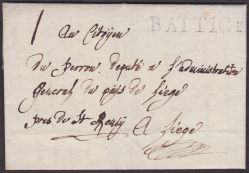 BATTICE
au Citoyen
du perron deputé a l'administration
General du païs de Liege
pres de St Remy A Liege